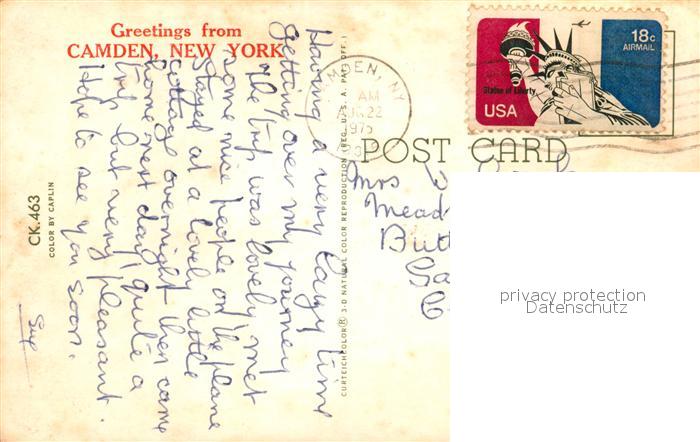 Greetings from
CAMDEN, NEW YORK
Having a very lazy time
getting over my journey
The trip was lovely, met
some nice people on the plane
Stayed at a lovely little
cottage overnight then came
home next day, quite a
trip but very pleasant.
Hope to see you soon.
Sue
CK.463
COLOR BY CAPLIN
CURTEICHCOLOR® 3-D NATURAL COLOR REPRODUCTION (REG. U.S.A. PAT. OFF.)
CAMDEN, NY
AM
AUG 22
1975
18c
AIRMAIL
Statue of Liberty
USA
POST CARD
Mrs
Mead
Butt
privacy protection
Datenschutz